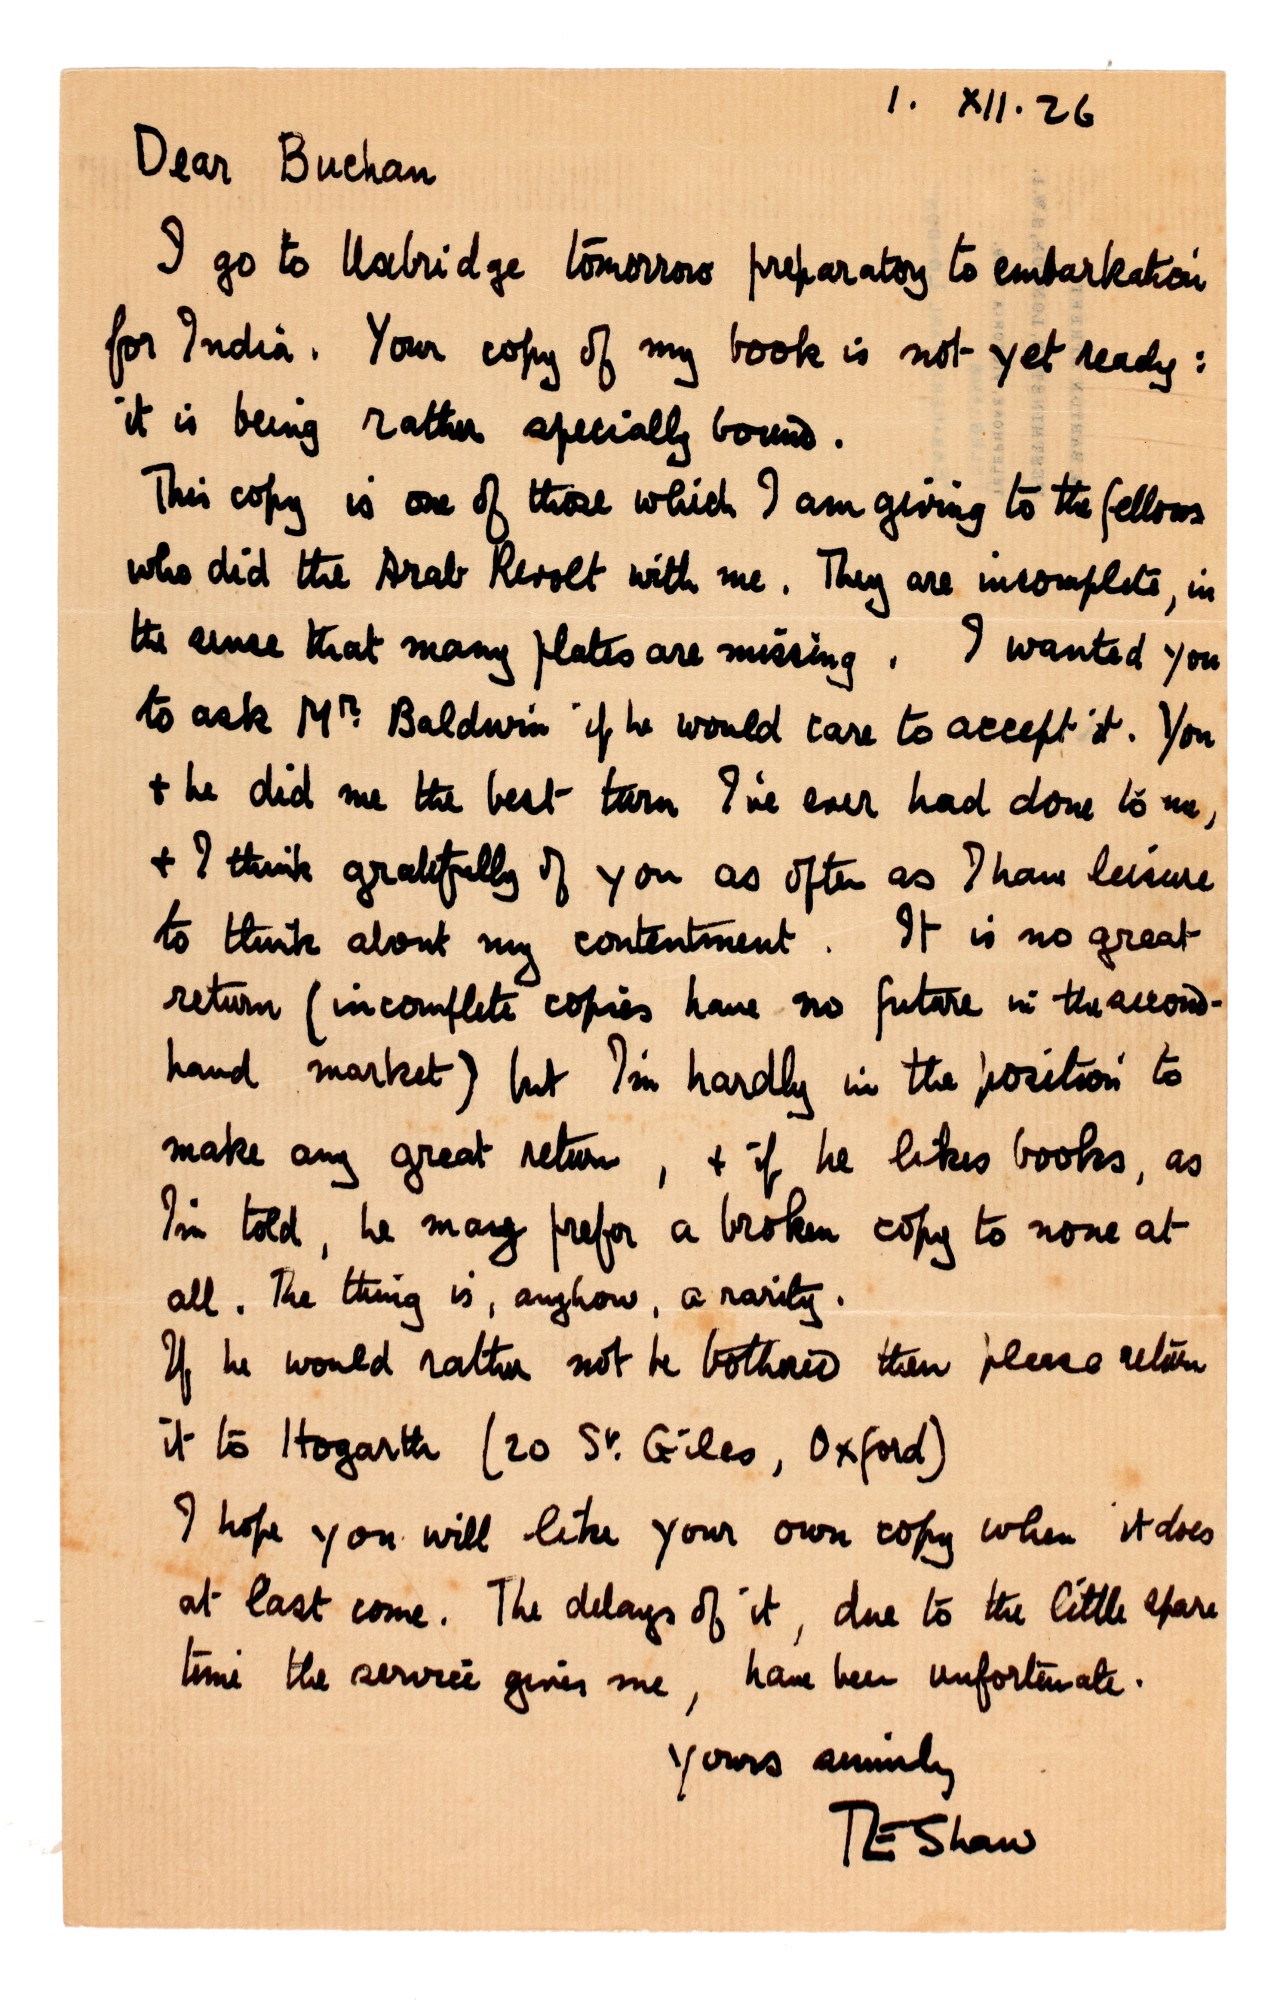 1. XII. 26
Dear Buchan
I go to Uxbridge tomorrow preparatory to embarkation
for India. Your copy of my book is not yet ready:
it is being rather specially bound.
This copy is one of those which I am giving to the fellows
who did the Arab Revolt with me. They are incomplete, in
the sense that many plates are missing. I wanted you
to ask Mr. Baldwin if he would care to accept it. You
+ he did me the best turn I've ever had done to me,
+ I think gratefully of you as often as I have leisure
to think about my contentment. It is no great
return (incomplete copies have no future in the second-
hand market) but I'm hardly in the position to
make any great return, + if he likes books, as
I'm told, he may prefer a broken copy to none at
all. The thing is, anyhow, a rarity.
If he would rather not be bothered then please return
it to Hogarth (20 St. Giles, Oxford)
I hope you will like your own copy when it does
at last come. The delays of it, due to the little spare
time the service gives me, have been unfortunate.
Yours sincerely
TE Shaw